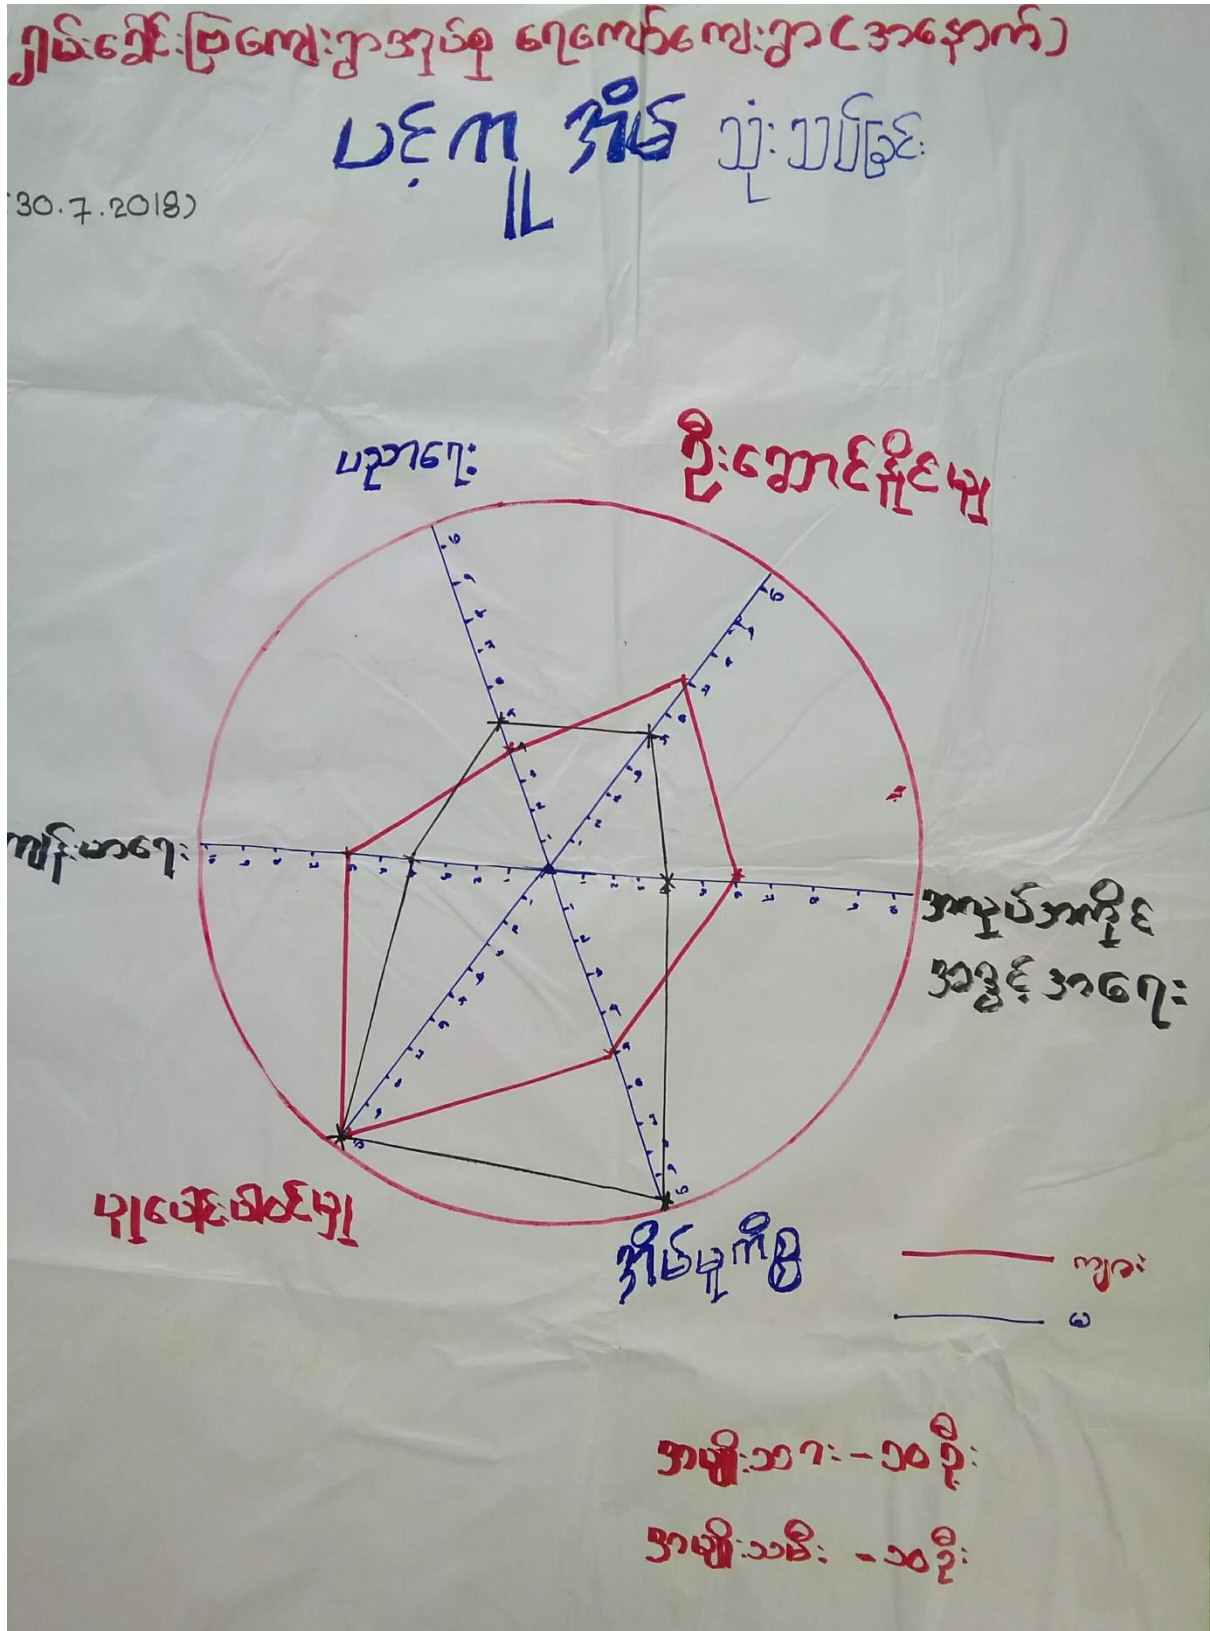 ရှမ်းခေါင်းဗြကျေးရွာအုပ်စု ရေကျော်ကျေးရွာ (အနောက်)
ပင့်ကူ အိမ် သုံးသပ်ခြင်း
30.7.2018)
ပညာရေး
ဦးဆောင်နိုင်မှု
ကျန်းမာရေး
အလုပ်အကိုင်
အခွင့်အရေး
ပူးပေါင်းပါဝင်မှု
အိမ်မှုကိစ္စ
ကျား
မ
အမျိုးသား - ၁၀ ဦး
အမျိုးသမီး - ၁၀ ဦး